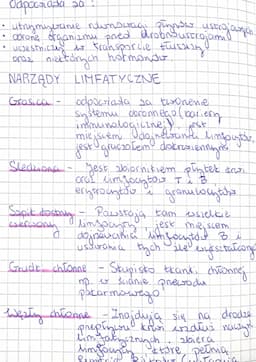 Odpowiada za :
• utrzymywanie równowagi płynów ustrojowych
• obronę organizmu pred drobnoustrojami
• uczestniczy w transporcie tłuszczy
oraz niektórych hormonów.
NARZĄDY LIMFATYCZNE
Grasica - odpowiada za tworenie
systemu obronnego (bariery
immunologicznej) jest
miejscem dojrzewania limfocytów,
jest gruczołem dokrewnym
Śledziona - Jest zbiornikiem płytek krwi
oraz limfocytów T i B
erytrocytów i granulocytów
Szpik kostny - Powstają tam wszelkie
czerwony limfocyty jest miejscem
dojrzewania limfocytów B i
usuwania tych źle wykształconych
Grudk. chłonne - Skupisko tkank. chłonnej
np. w ścianie prewodu
pokarmowego
Węzły chłonne - Znajdują się na drodze
prepływu limfatycznych
limfocytów, które pełnią